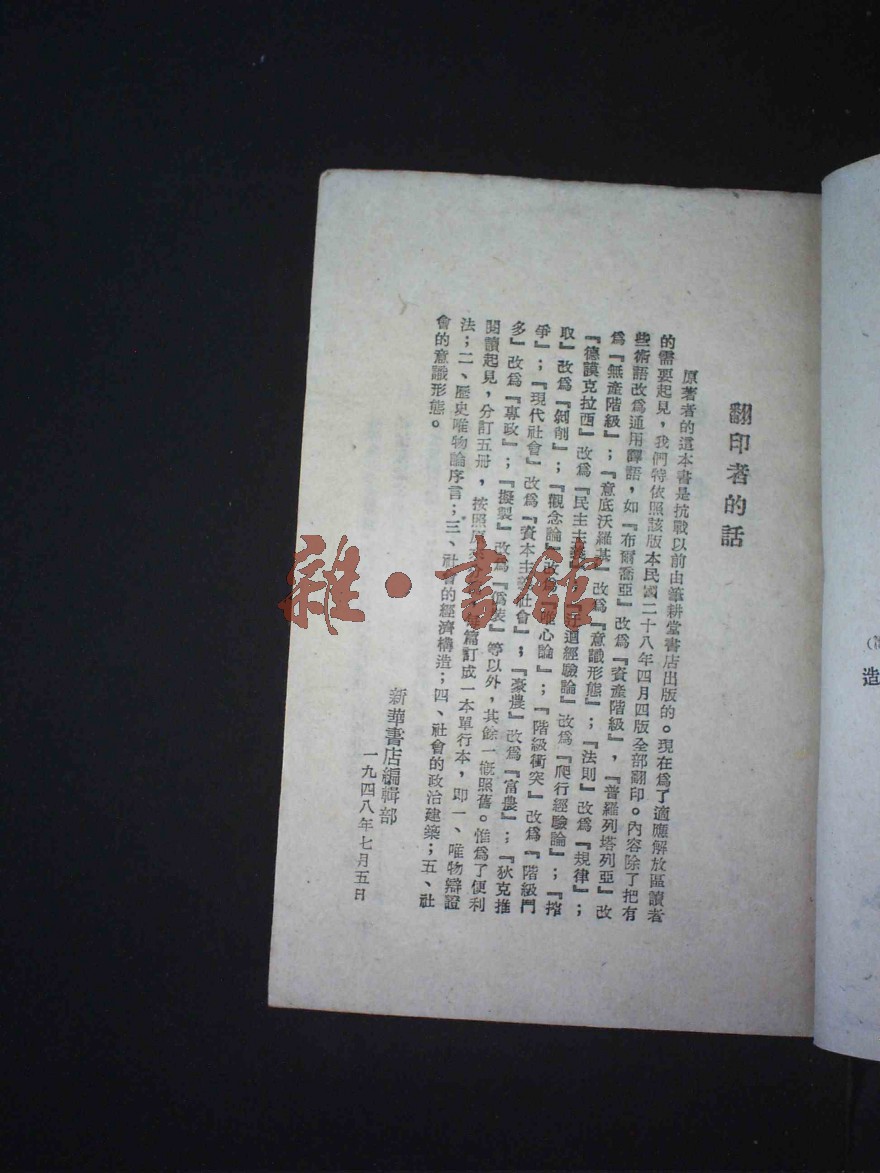 翻印者的話
原著者的這本書是抗戰以前由筆耕堂書店出版的。現在爲了適應解放區讀者
的需要起見，我們特依照該版本民國二十八年四月四版全部翻印。內容除了把有
些術語改爲通用譯語，如『布爾喬亞』改爲『資產階級』，『普羅列塔列亞』改
爲『無產階級』；『意底沃羅基』改爲『意識形態』；『法則』改爲『規律』；
『德謨克拉西』改爲『民主主義』；經驗論』改爲『爬行經驗論』；『搾
取』改爲『剝削』；『觀念論』改爲『唯心論』；『階級衝突』改爲『階級鬥
爭』；『現代社會』改爲『資本主義社會』；『豪農』改爲『富農』；『狄克推
多』改爲『專政』；『擬製』改爲『僞裝』等以外，其餘一概照舊。惟爲了便利
閱讀起見，分訂五册，按照原篇訂成一本單行本，即一、唯物辯證
法；二、歷史唯物論序言；三、社會的經濟構造；四、社會的政治建築；五、社
會的意識形態。
新華書店編輯部
一九四八年七月五日
雜·書館
造